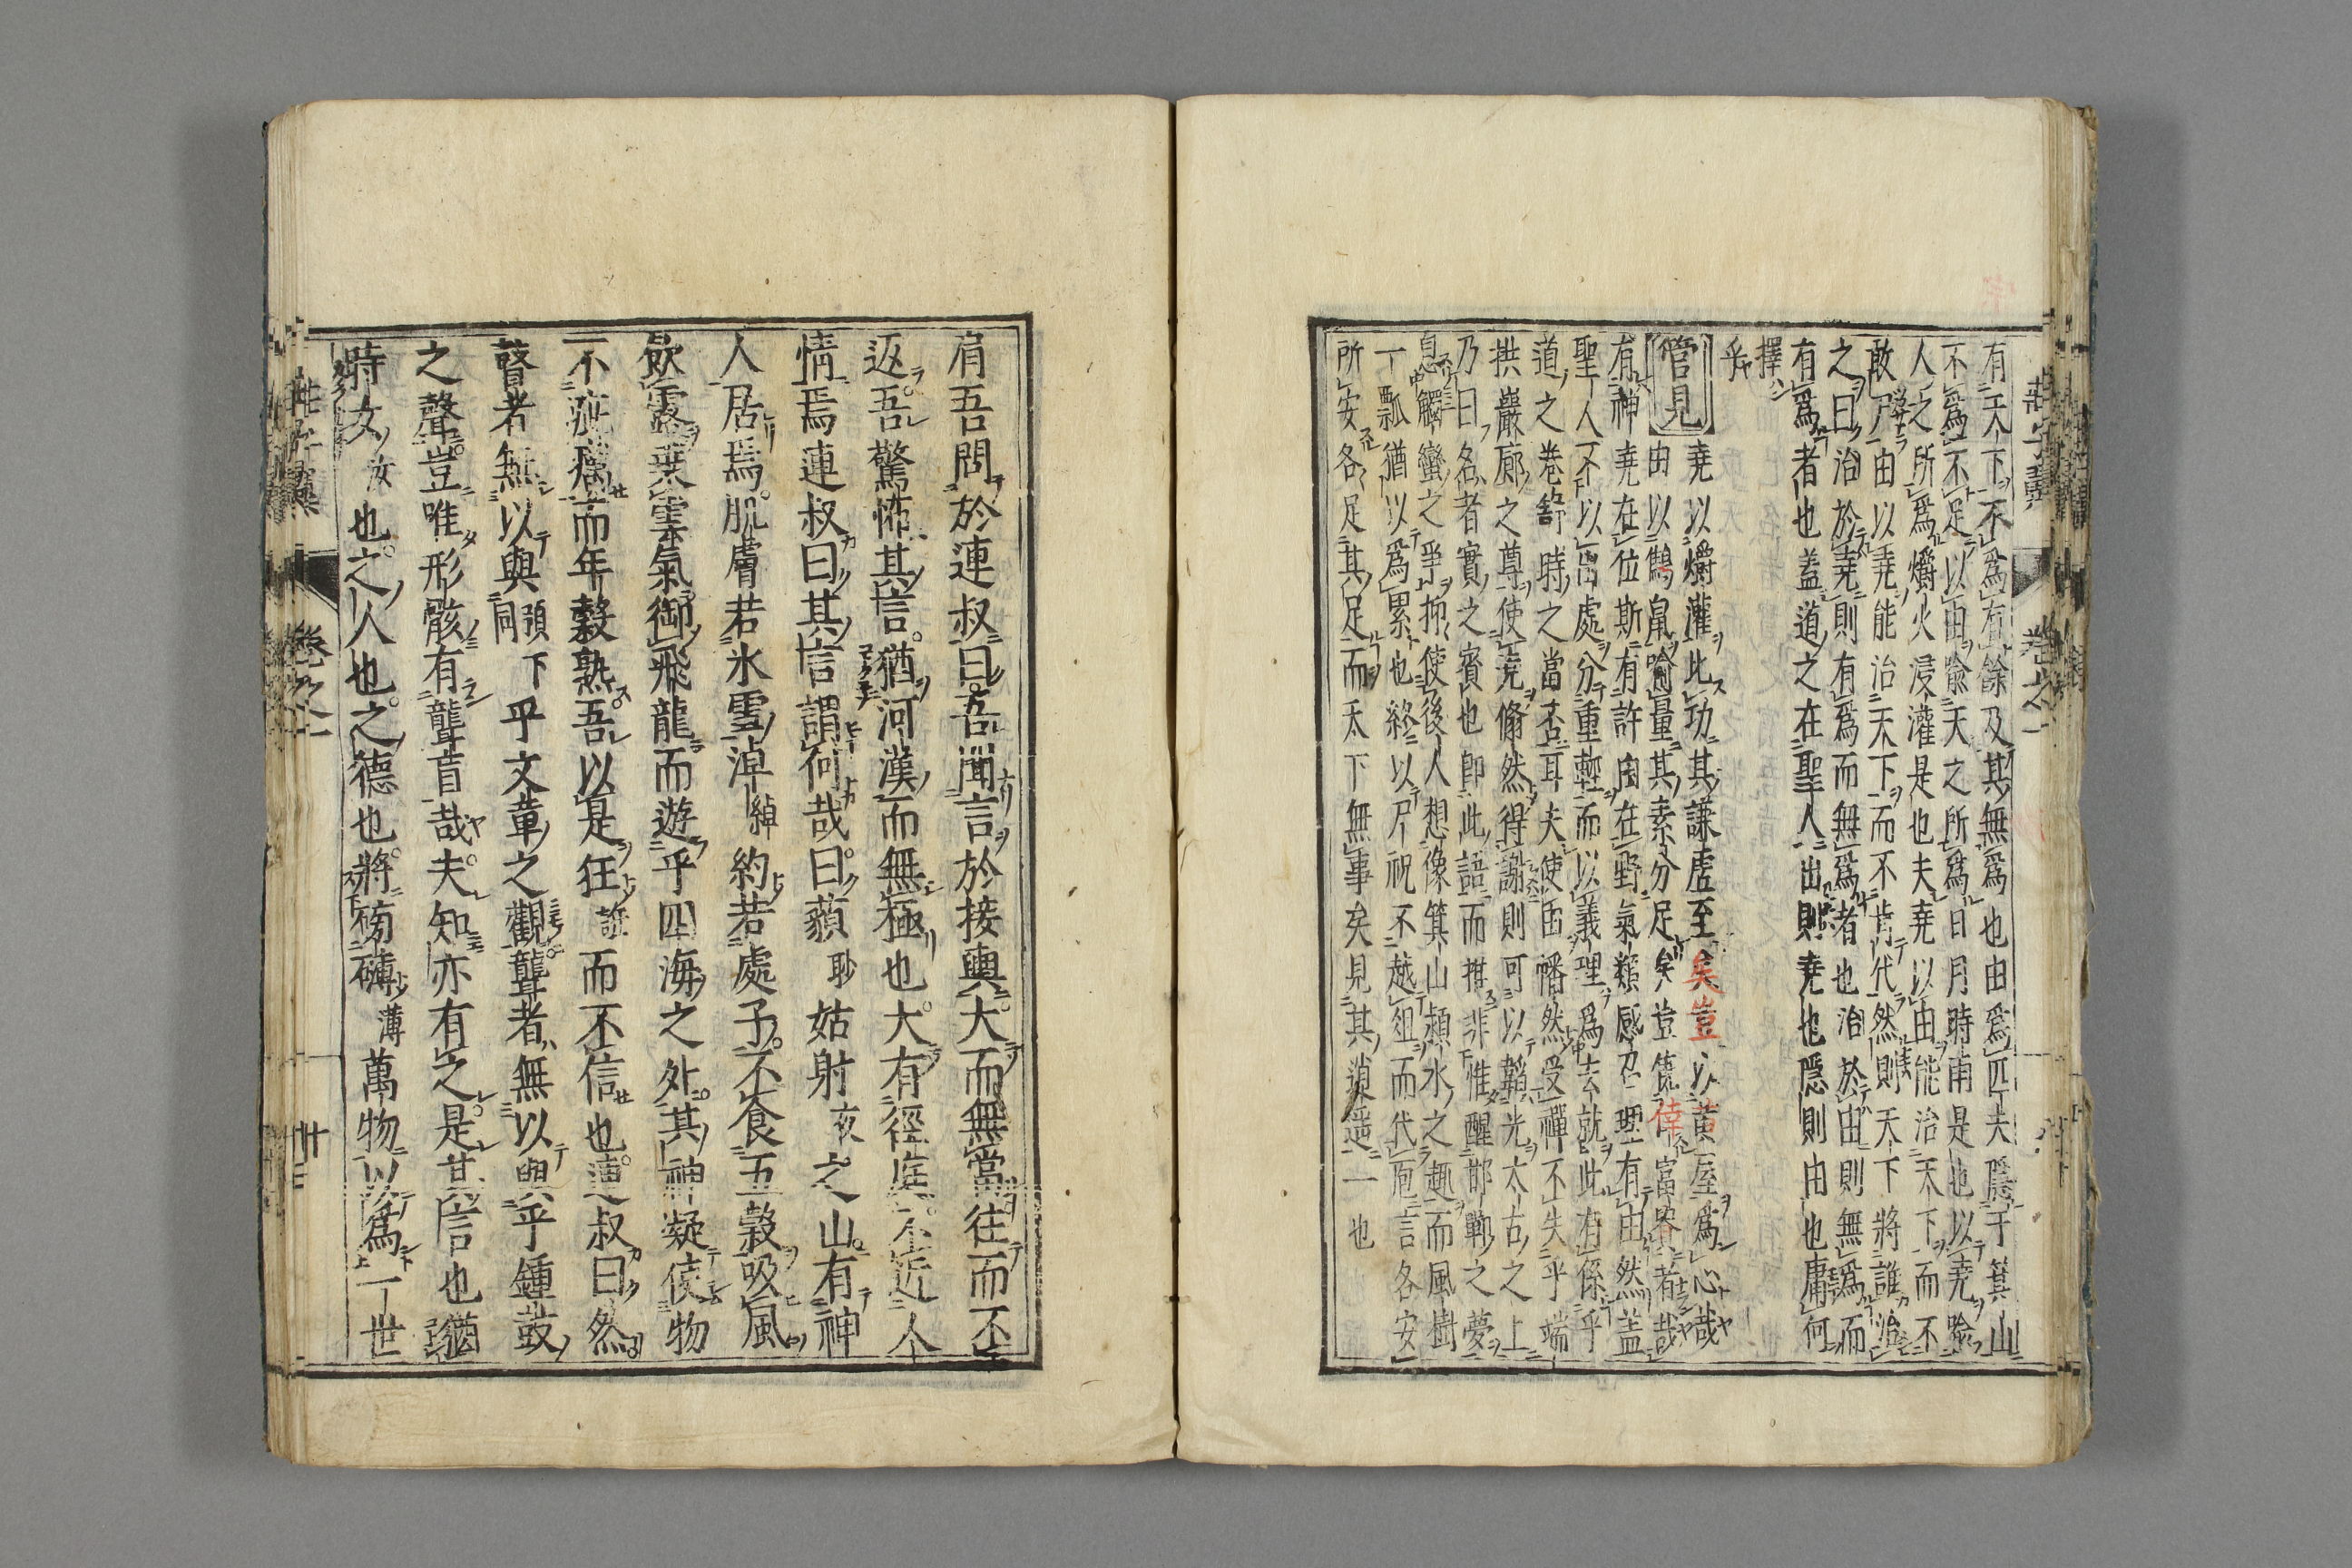 莊子翼 卷之一
有天下不爲有餘及其無爲也由爲匹夫隱于箕山
不爲不足以由喩天之所爲日月時雨是也以堯喩
人之所爲爝火浸灌是也夫堯以由能治天下而不
敢尸由以堯能治天下而不肯代然則天下將誰治
之曰治於堯則有爲而無爲者也治於由則無爲而
有爲者也蓋道之在聖人出則堯也隱則由也庸何
擇
乎
管見 堯以爝灌比功其謙虛至矣豈以黃屋爲心哉
由以鷦鼠喩量其素分足矣豈僥倖富貴者哉
有神堯在位斯有許由在野氣類感召理有由然蓋
聖人不以出處分重輕而以義理爲去就此有係乎
道之卷舒時之當否耳夫使由幡然受禪不失乎端
拱巖廊之尊使堯翛然得謝則可以韜光太古之上
乃曰名者實之賓也卽此語而推非惟醒邯鄲之夢
息觸蠻之爭抑使後人想像箕山潁水之趣而風樹
一瓢猶以爲累也終以尸祝不越俎而代庖言各安
所安各足其足而天下無事矣見其逍遥一也
肩吾問於連叔曰吾聞言於接輿大而無當往而不
返吾驚怖其言猶河漢而無極也大有徑庭不近人
情焉連叔曰其言謂何哉曰藐 眇 姑射 亥 之山有神
人居焉肌膚若氷雪淖 綽 約若處子不食五穀吸風
飮露乗雲氣御飛龍而遊乎四海之外其神凝使物
不疵癘而年穀熟吾以是狂 誑 而不信也連叔曰然
瞽者無以與 頭下同 乎文章之觀聾者無以與乎鍾鼓
之聲豈唯形骸有聾盲哉夫知亦有之是其言也猶
時女 汝 也之人也之德也將磅礡 薄 萬物以爲一世
莊子翼 卷之一 廿三